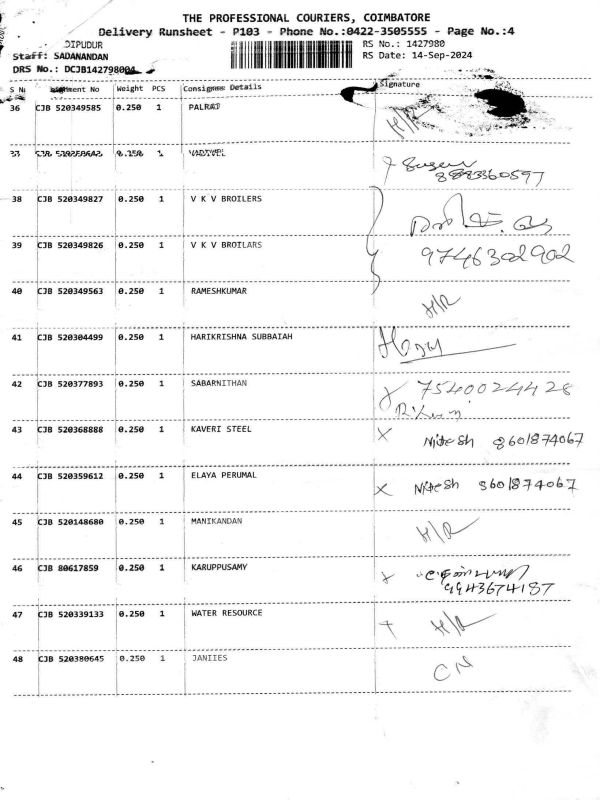 THE PROFESSIONAL COURIERS, COIMBATORE
Delivery Runsheet - P103 - Phone No.:0422-3505555 - Page No.:4
DIPUDUR
RS No.: 1427980
Staff: SADANANDAN
RS Date: 14-Sep-2024
DRS No.: DCJB142798004
S No Weight PCS Consignee Details Signature
36 CJB 520349585 0.250 1 PALRAJ H/R
37 CJB 0.250 1 VADIVEL
8883360597
38 CJB 520349827 0.250 1 V K V BROILERS
39 CJB 520349826 0.250 1 V K V BROILARS 9746302902
40 CJB 520349563 0.250 1 RAMESHKUMAR H/R
41 CJB 520304499 0.250 1 HARIKRISHNA SUBBAIAH
42 CJB 520377893 0.250 1 SABARNITHAN 7540024428
43 CJB 520368888 0.250 1 KAVERI STEEL X Nitesh 8601874067
44 CJB 520359612 0.250 1 ELAYA PERUMAL X Nitesh 8601874067
45 CJB 520148680 0.250 1 MANIKANDAN H/R
46 CJB 80617859 0.250 1 KARUPPUSAMY X
9943674187
47 CJB 520339133 0.250 1 WATER RESOURCE H/R
48 CJB 520380645 0.250 1 JANIIES CN